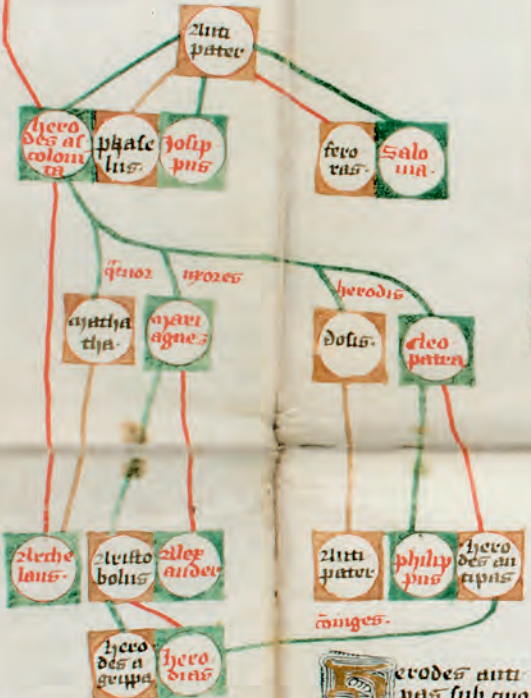 Anti
pater
hero
des as
coloni
ta
phase
lus.
Josip
pus
fero
ras.
Salo
ma.
uxores
herodis
matha
tha.
mari
agnes
dosis.
cleo
patra
Arche
laus.
Aristo
bolus
Alex
ander
Anti
pater
philip
pus
hero
des an
tipas
hero
des a
grippa
hero
dias
erodes anti
pas sub quo